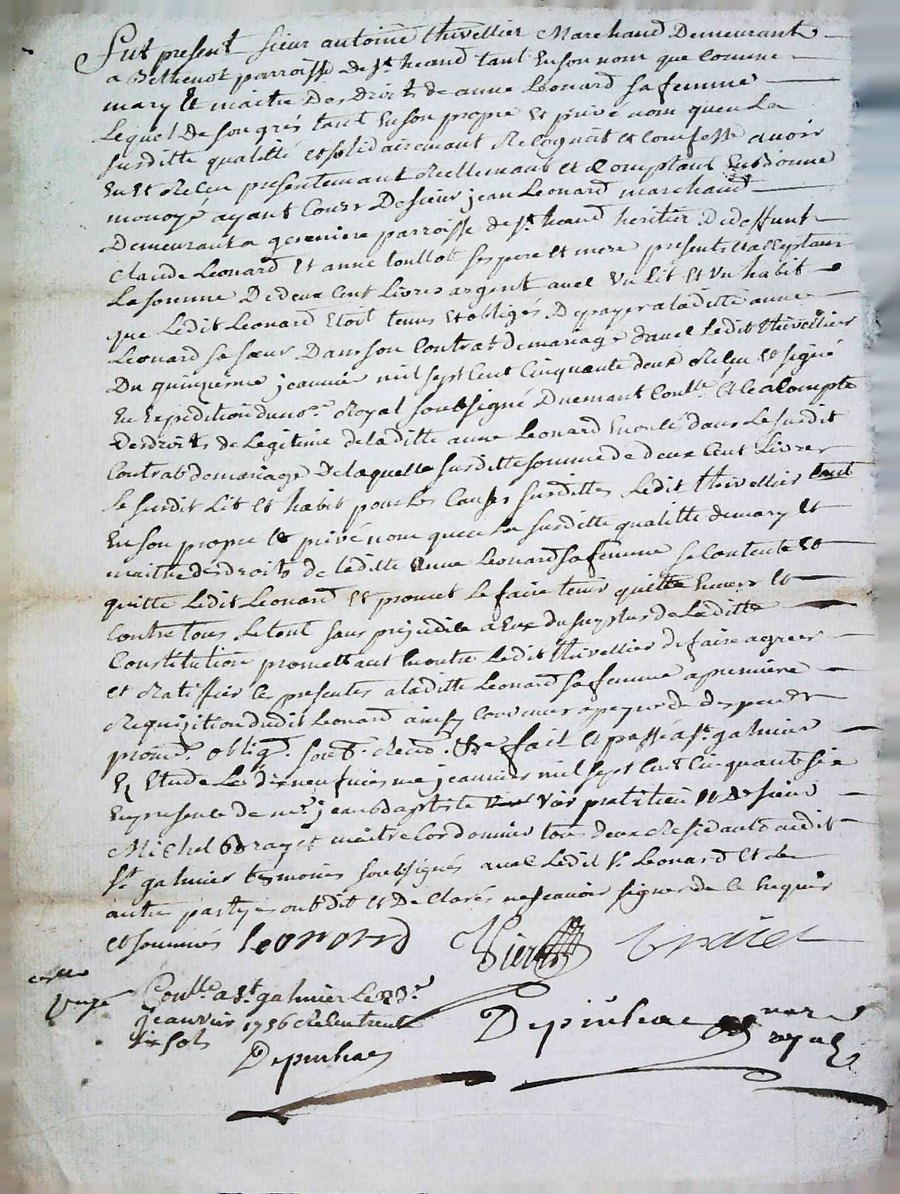 Fut present sieur antoine thivellier Marchand Demeurant
a Bethenod parroisse de st heand tant En son nom que comme
mary et maitre Des Droits de anne Leonard sa femme
Lequel De son grés tant En son propre et privé nom quen La
susditte qualitté et solidairemant Recognoit et Confesse avoir
Eu et Receu presentemant Reellemant et Comptant En bonne
monoyé ayant Cours De sieur jean Leonard marchand
Demeurant a parroisse de st heand heritier De deffunt
Claude Leonard et anne ses pere et mere present et acceptant
La somme De deux Cent Livres argent avec Un Lit et Un habit
que Ledit Leonard Etoit tenus et obligés De payer a laditte anne
Leonard sa sœur Dans son Contrat de mariage davec Ledit thivellier
Du quinzieme jeanvier mil sept Cent Cinquante deux Receu et signé
En Expedition du no.re Royal soubsigné Duemant Conllé et le a Compte
Des droits de Legitime de laditte anne Leonard Enoncé dans Le susdit
Contrat de mariage De laquelle susditte somme de deux Cent Livres
Le susdit Lit et habit pour les Causes susdittes Ledit thivellier tant
En son propre et privé nom quen La susditte qualitté de mary et
maitre des droits de laditte Anne Leonard sa femme se Contente et
quitte Ledit Leonard et promet Le faire tenir quitte Envers et
Contre tous Le tout sans prejudice a Eux du surplus de Laditte
Constitution promettant En outre Ledit thivellier de faire agreer
et Ratiffier Ce presentes a laditte Leonard sa femme a premiere
Requisition dudit Leonard ainsy Convenus a peyne de despendt
prom.t oblig.t soub. Rend. fait et passé a st galmier
En Etude Le dix neufvieme jeanvier mil sept Cent Cinquant six
En presence de m.re jean baptiste Vier pratitien et de sieur
Michel Brayet maitre Cordonnier tous deux Residants audit
st galmier tesmoins soubsignés avec Ledit sr Leonard et Les
autre partyes ont dit et De Clarés ne scavoir signer de Ce Enquis
et sommés Leonard Vier braiet
Conllé a st galmier Le
jeanvir 1756 Receu trente
six sols
Depinhac
Depinhac no.re royal